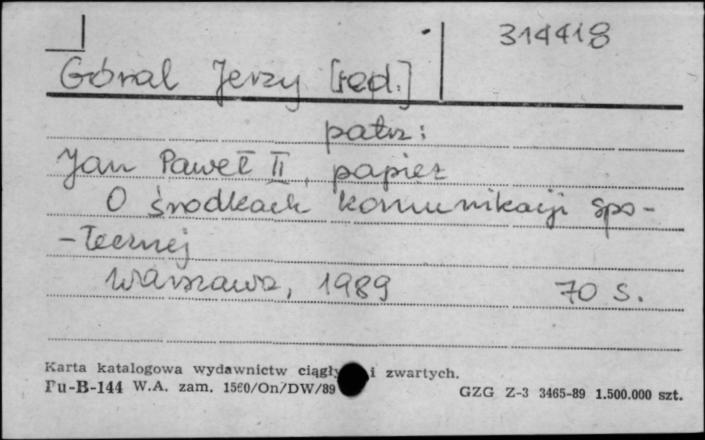 314418
Góral Jerzy [red.]
patrz:
Jan Paweł II, papież
O środkach komunikacji spo-
-łecznej
Warszawa, 1989 70 s.
Karta katalogowa wydawnictw ciągły i zwartych.
Pu-B-144 W.A. zam. 1560/On/DW/89 GZG Z-3 3465-89 1.500.000 szt.